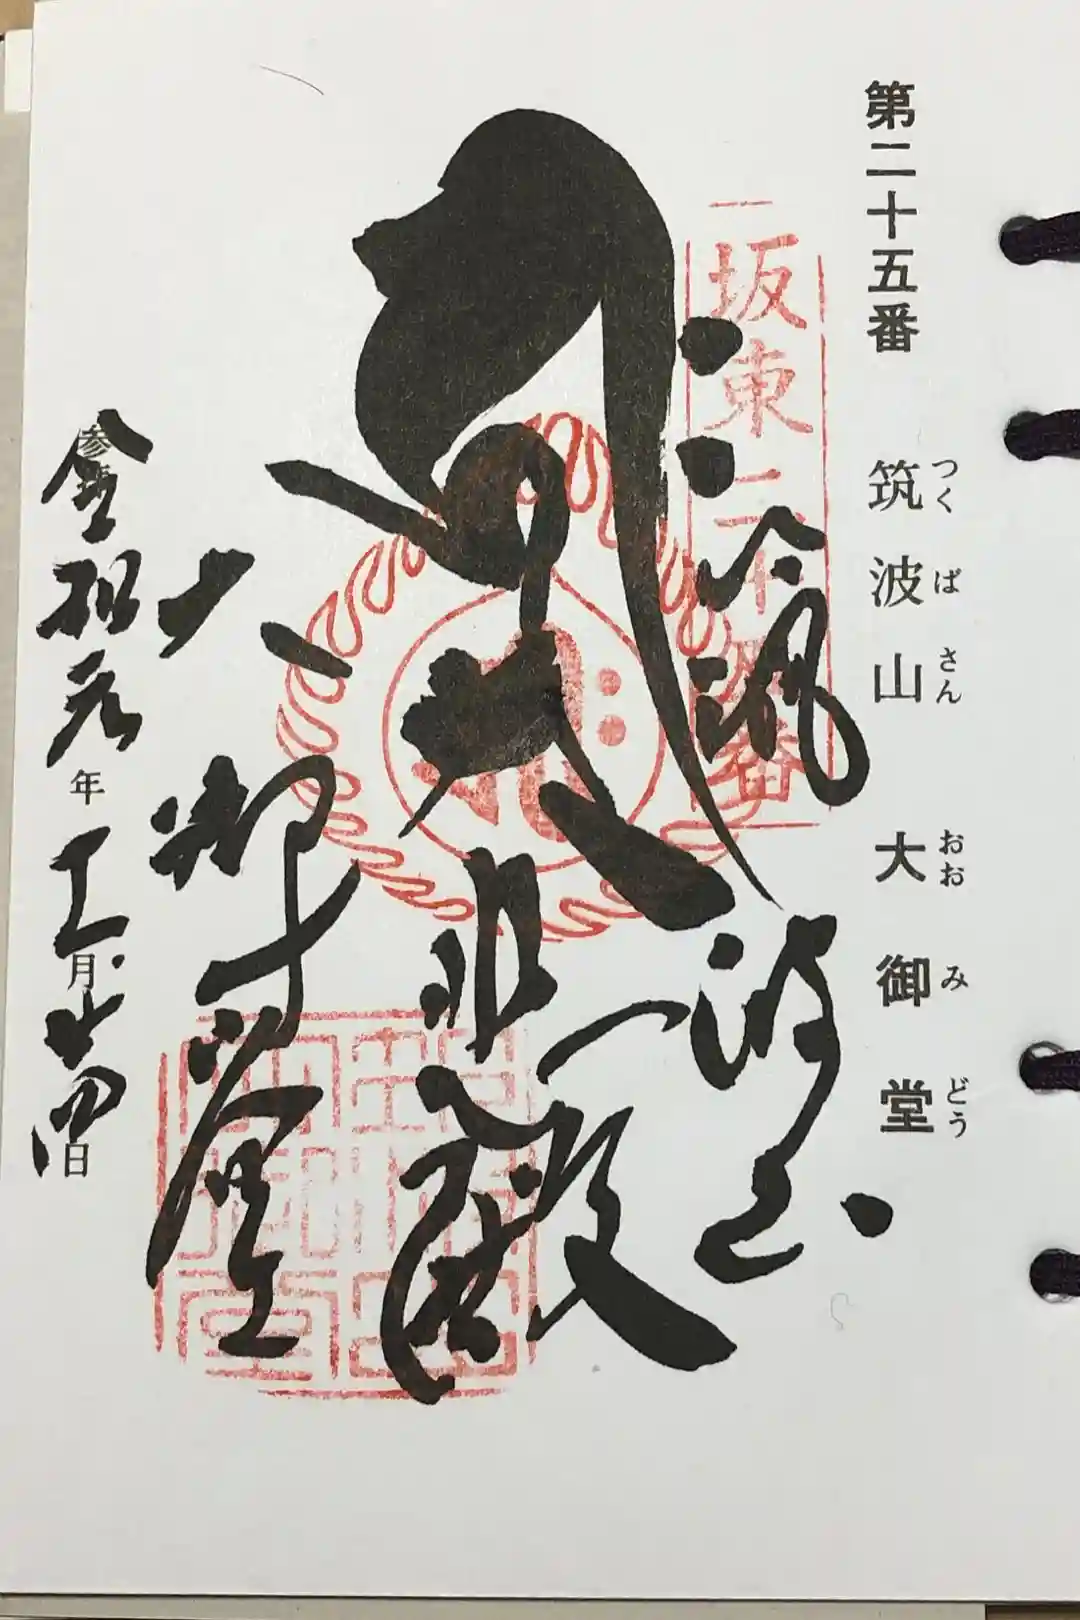 第二十五番 筑波山 大御堂
つくばさん おおみどう
坂東二十五番
筑波山
大悲殿
大御堂
令和元年五月十四日